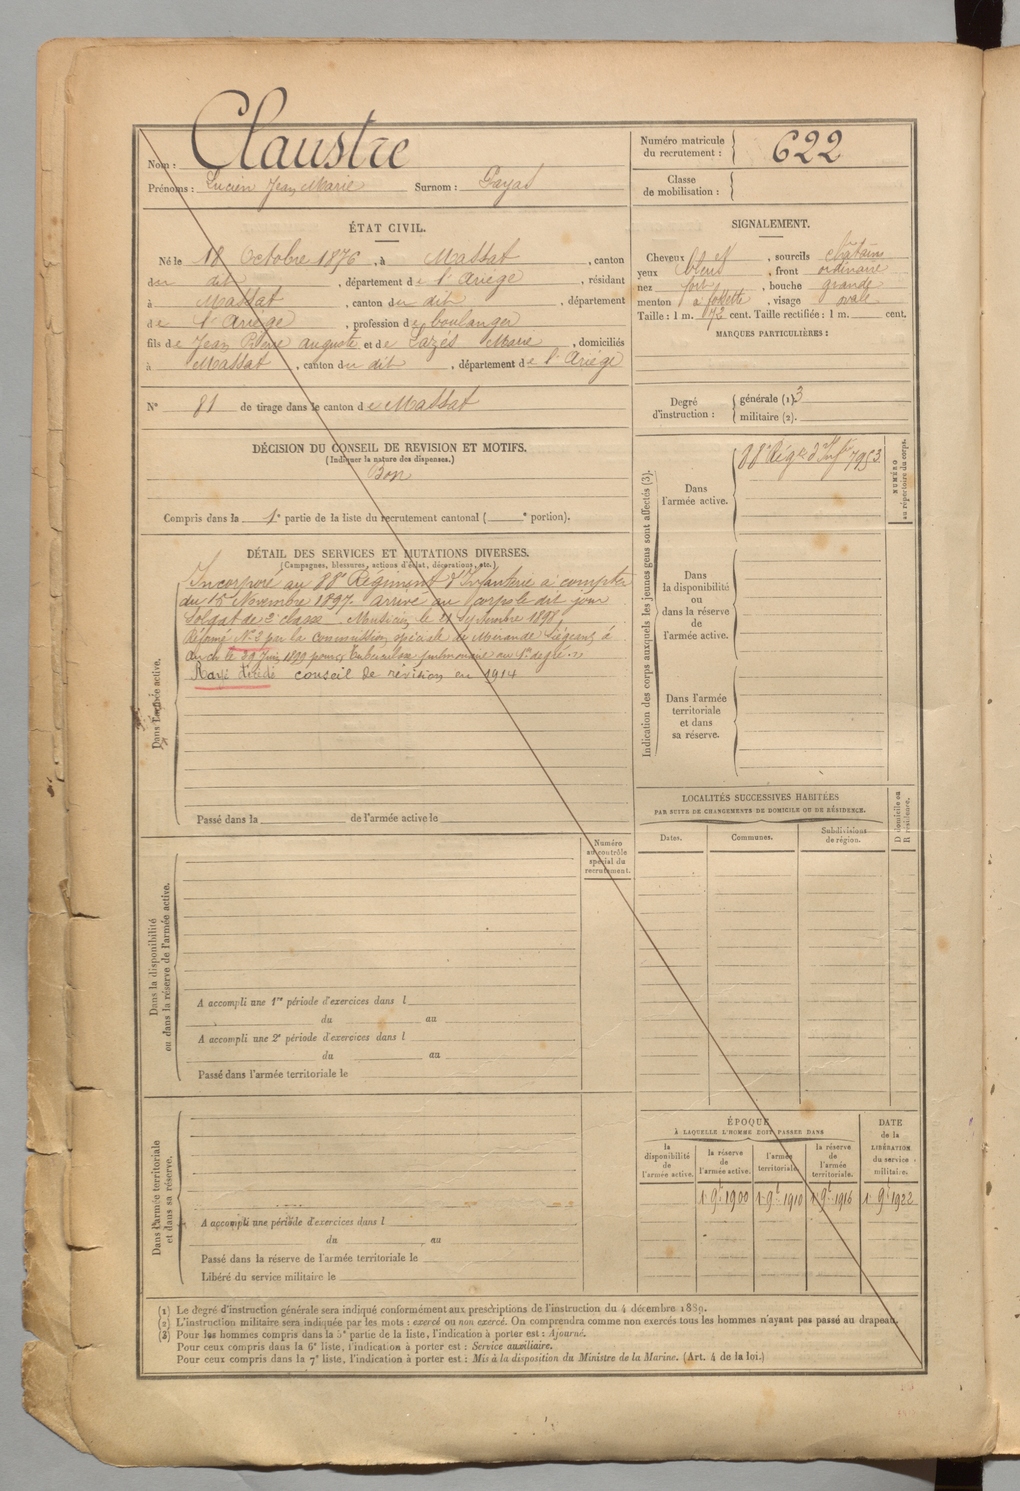 Nom : Claustre
Prénoms : Lucien Jean Marie Surnom : Payas
Numéro matricule du recrutement : 622
Classe de mobilisation :
ÉTAT CIVIL.
Né le 18 Octobre 1876, à Massat, canton
du dit, département de l'Ariège, résidant
à Massat, canton du dit, département
de l'Ariège, profession de boulanger
fils de Jean Pierre auguste et de Cazes Marie, domiciliés
à Massat, canton du dit, département de l'Ariège
N° 81 de tirage dans le canton de Massat
SIGNALEMENT.
Cheveux et N, sourcils châtains
yeux bleus, front ordinaire
nez fort, bouche grande
menton à fossette, visage ovale
Taille : 1 m. 72 cent. Taille rectifiée : 1 m. cent.
MARQUES PARTICULIÈRES :
Degré d'instruction : générale (1) 3
militaire (2).
DÉCISION DU CONSEIL DE REVISION ET MOTIFS.
(Indiquer la nature des dispenses.)
Bon
Compris dans la 1e partie de la liste du recrutement cantonal ( e portion).
DÉTAIL DES SERVICES ET MUTATIONS DIVERSES.
(Campagnes, blessures, actions d'éclat, décorations, etc.)
Dans l'armée active.
Incorporé au 88e Régiment d'Infanterie à compter
du 15 Novembre 1897. arrivé au corps le dit jour
Soldat de 2e classe Musicien le 21 Septembre 1898,
Réformé N° 2 par la Commission spéciale de Mirande siégeant à
Auch le 29 Juin 1899 pour Tuberculose pulmonaire au 1er degré.
Rayé conseil de révision en 1914
Passé dans la de l'armée active le
Indication des corps auxquels les jeunes gens sont affectés (3).
NUMÉRO au répertoire du corps.
Dans l'armée active.
88e Rég d'Infie 7953
Dans la disponibilité ou dans la réserve de l'armée active.
Dans l'armée territoriale et dans sa réserve.
LOCALITÉS SUCCESSIVES HABITÉES
PAR SUITE DE CHANGEMENTS DE DOMICILE OU DE RÉSIDENCE.
Dates. Communes. Subdivisions de région. D domicile ou R résidence.
Numéro au contrôle spécial du recrutement.
Dans la disponibilité ou dans la réserve de l'armée active.
A accompli une 1re période d'exercices dans l
du au
A accompli une 2e période d'exercices dans l
du au
Passé dans l'armée territoriale le
Dans l'armée territoriale et dans sa réserve.
A accompli une période d'exercices dans l
du , au
Passé dans la réserve de l'armée territoriale le
Libéré du service militaire le
ÉPOQUE
À LAQUELLE L'HOMME DOIT PASSER DANS
la disponibilité de l'armée active. la réserve de l'armée active. l'armée territoriale. la réserve de l'armée territoriale.
DATE de la LIBÉRATION du service militaire.
1 9t 1900 1 9t 1910 1 9t 1916 1 9t 1922
(1) Le degré d'instruction générale sera indiqué conformément aux prescriptions de l'instruction du 4 décembre 1889.
(2) L'instruction militaire sera indiquée par les mots : exercé ou non exercé. On comprendra comme non exercés tous les hommes n'ayant pas passé au drapeau.
(3) Pour les hommes compris dans la 5e partie de la liste, l'indication à porter est : Ajourné.
Pour ceux compris dans la 6e liste, l'indication à porter est : Service auxiliaire.
Pour ceux compris dans la 7e liste, l'indication à porter est : Mis à la disposition du Ministre de la Marine. (Art. 4 de la loi.)